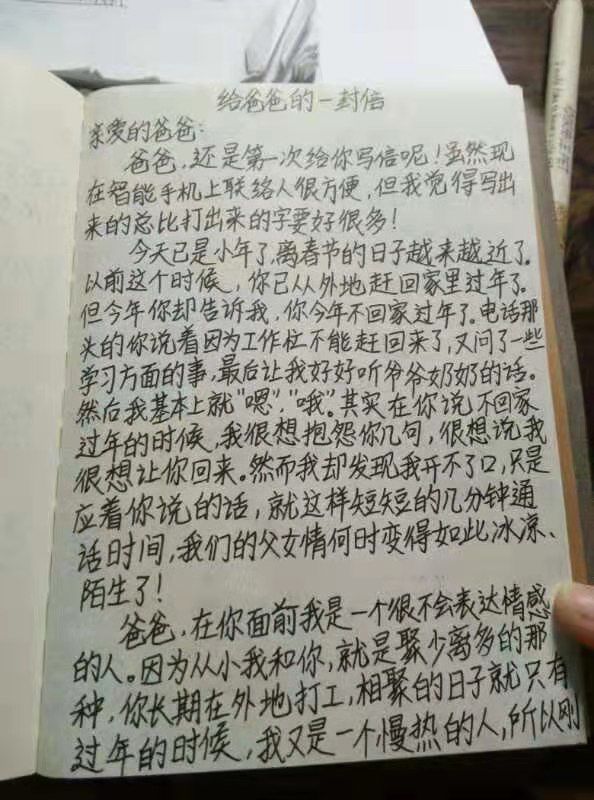 给爸爸的一封信
亲爱的爸爸:
爸爸,还是第一次给你写信呢!虽然现
在智能手机上联络人很方便,但我觉得写出
来的总比打出来的字要好很多!
今天已是小年了,离春节的日子越来越近了。
以前这个时候,你已从外地赶回家里过年了。
但今年你却告诉我,你今年不回家过年了。电话那
头的你说着因为工作忙不能赶回来了,又问了一些
学习方面的事,最后让我好好听爷爷奶奶的话。
然后我基本上就"嗯","哦"。其实在你说不回家
过年的时候,我很想抱怨你几句,很想说我
很想让你回来。然而我却发现我开不了口,只是
应着你说的话,就这样短短的几分钟通
话时间,我们的父女情何时变得如此冰凉、
陌生了!
爸爸,在你面前我是一个很不会表达情感
的人。因为从小我和你,就是聚少离多的那
种,你长期在外地打工,相聚的日子就只有
过年的时候,我又是一个慢热的人,所以刚